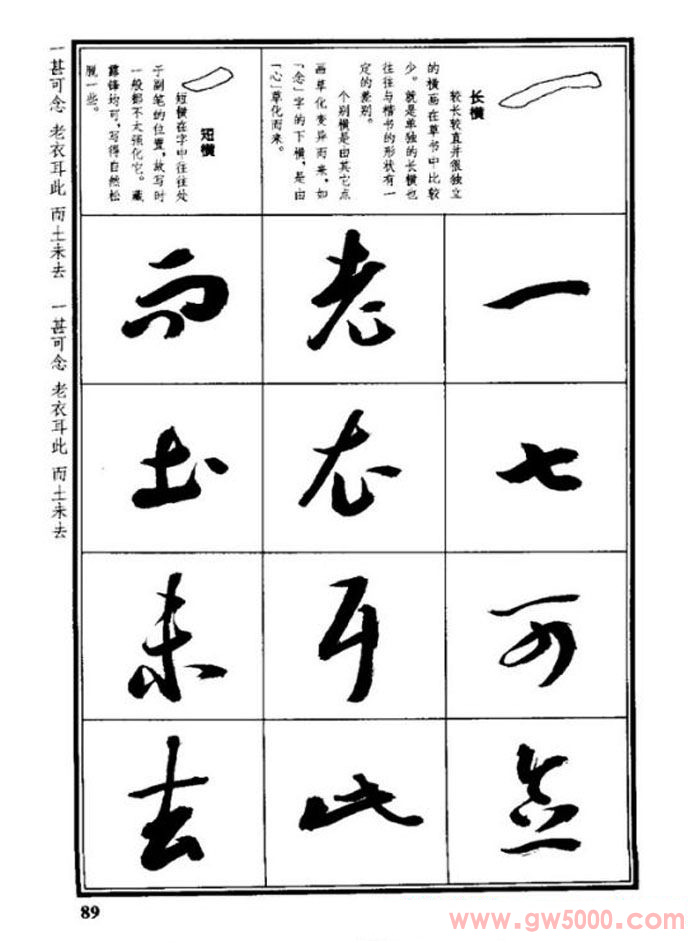 长横
较长较直并很独立
的横画在草书中比较
少。就是单独的长横也
往往与楷书的形状有一
定的差别。
个别横是由其它点
画草化变异而来，如
「念」字的下横，是由
「心」草化而来。
短横
短横在字中往往处
于副笔的位置，故写时
一般都不太强化它。藏
露锋均可，写得自然松
脱一些。
一甚可念
老衣耳此
而土未去
一甚可念 老衣耳此 而土未去 一甚可念 老衣耳此 而土未去
89
www.gw5000.com